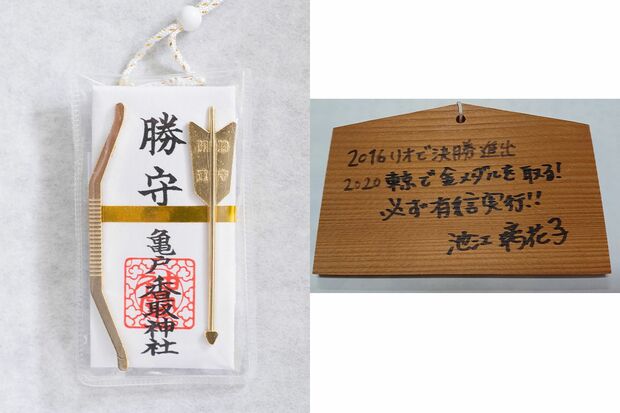 勝守
亀戸香取神社
2016リオで決勝進出
2020東京で金メダルを取る!
必ず有言実行!!
池江璃花子